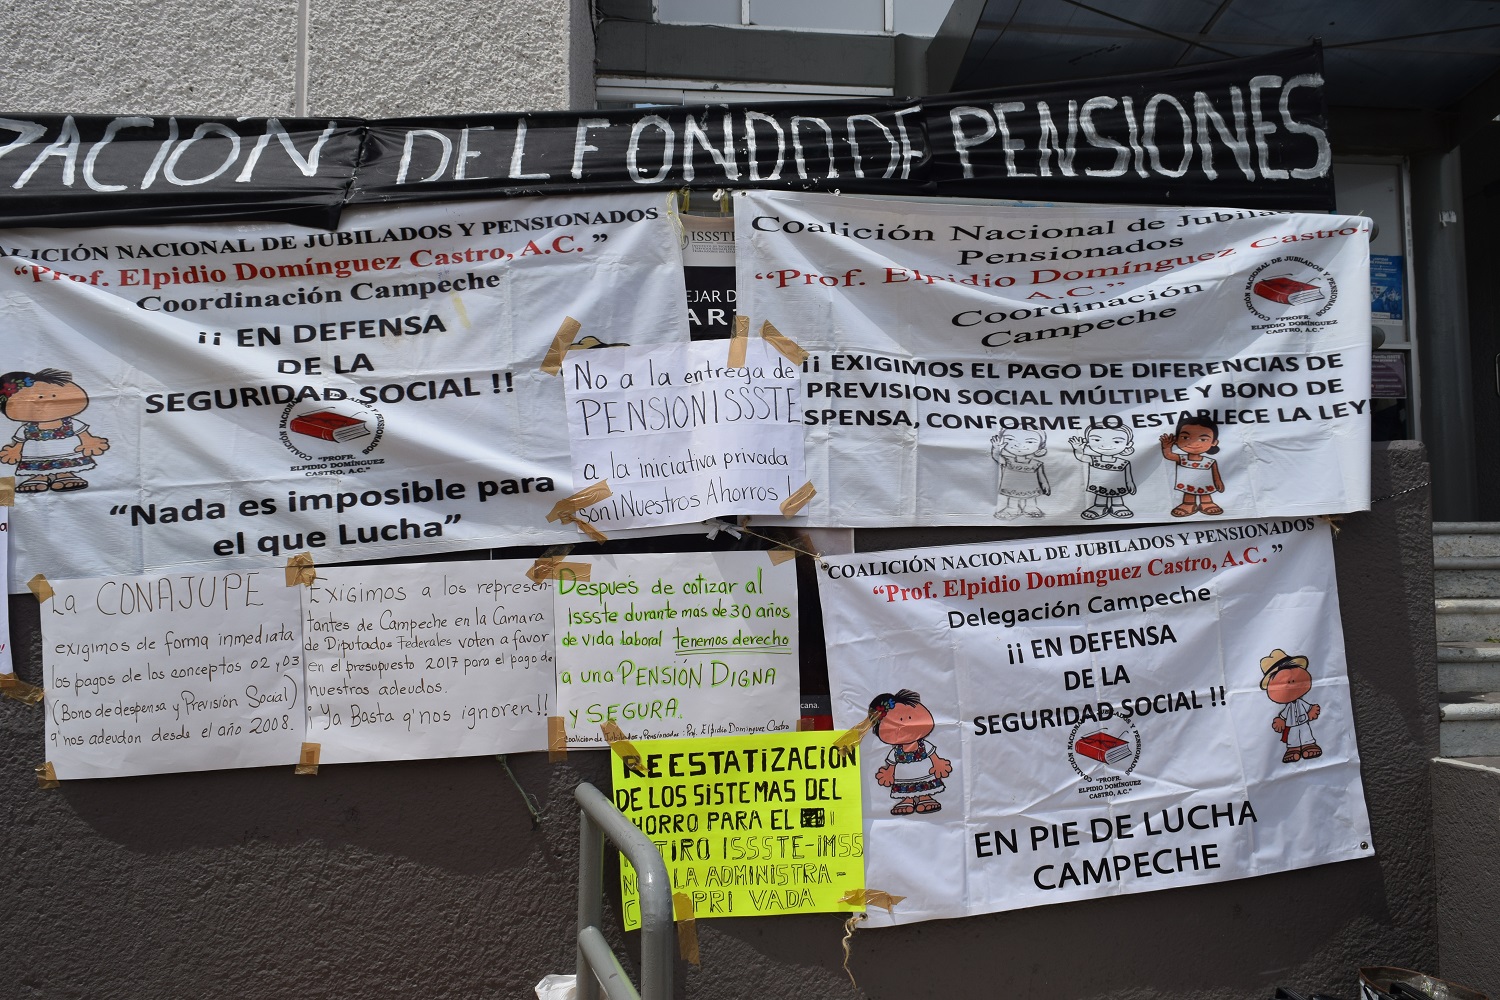 ACION DEL FONDO DE PENSIONES
ALICIÓN NACIONAL DE JUBILADOS Y PENSIONADOS
“Prof. Elpidio Domínguez Castro, A.C. ”
Coordinación Campeche
¡¡ EN DEFENSA
DE LA
SEGURIDAD SOCIAL !!
COALICIÓN NACIONAL DE JUBILADOS Y PENSIONADOS
"PROFR.
ELPIDIO DOMÍNGUEZ
CASTRO, A.C."
“Nada es imposible para
el que Lucha”
ISSSTE
EJAR D
AR
Coalición Nacional de Jubila
Pensionados
“Prof. Elpidio Domínguez Castro
A.C.”
Coordinación
Campeche
COALICIÓN NACIONAL DE JUBILADOS Y PENSIONADOS
"PROFR.
ELPIDIO DOMÍNGUEZ
CASTRO, A.C."
¡¡ EXIGIMOS EL PAGO DE DIFERENCIAS DE
PREVISION SOCIAL MÚLTIPLE Y BONO DE
SPENSA, CONFORME LO ESTABLECE LA LEY
No a la entrega de
PENSIONISSSTE
a la iniciativa privada
son ¡Nuestros Ahorros!
La CONAJUPE
exigimos de forma inmediata
los pagos de los conceptos 02 y 03
(Bono de despensa y Previsión Social)
q' nos adeudan desde el año 2008.
Exigimos a los represen-
tantes de Campeche en la Camara
de Diputados Federales voten a favor
en el presupuesto 2017 para el pago de
nuestros adeudos.
¡Ya Basta q' nos ignoren!!
Después de cotizar al
Issste durante mas de 30 años
de vida laboral tenemos derecho
a una PENSIÓN DIGNA
y SEGURA.
Coalicion de Jubilados y Pensionados: Prof. Elpidio Dominguez Castro
cana.
REESTATIZACIÓN
DE LOS SISTEMAS DEL
HORRO PARA EL
TIRO ISSSTE-IMSS
LA ADMINISTRA-
PRIVADA
COALICIÓN NACIONAL DE JUBILADOS Y PENSIONADOS
“Prof. Elpidio Domínguez Castro, A.C. ”
Delegación Campeche
¡¡ EN DEFENSA
DE LA
SEGURIDAD SOCIAL !!
COALICIÓN NACIONAL DE JUBILADOS Y PENSIONADOS
"PROFR.
ELPIDIO DOMÍNGUEZ
CASTRO, A.C."
EN PIE DE LUCHA
CAMPECHE